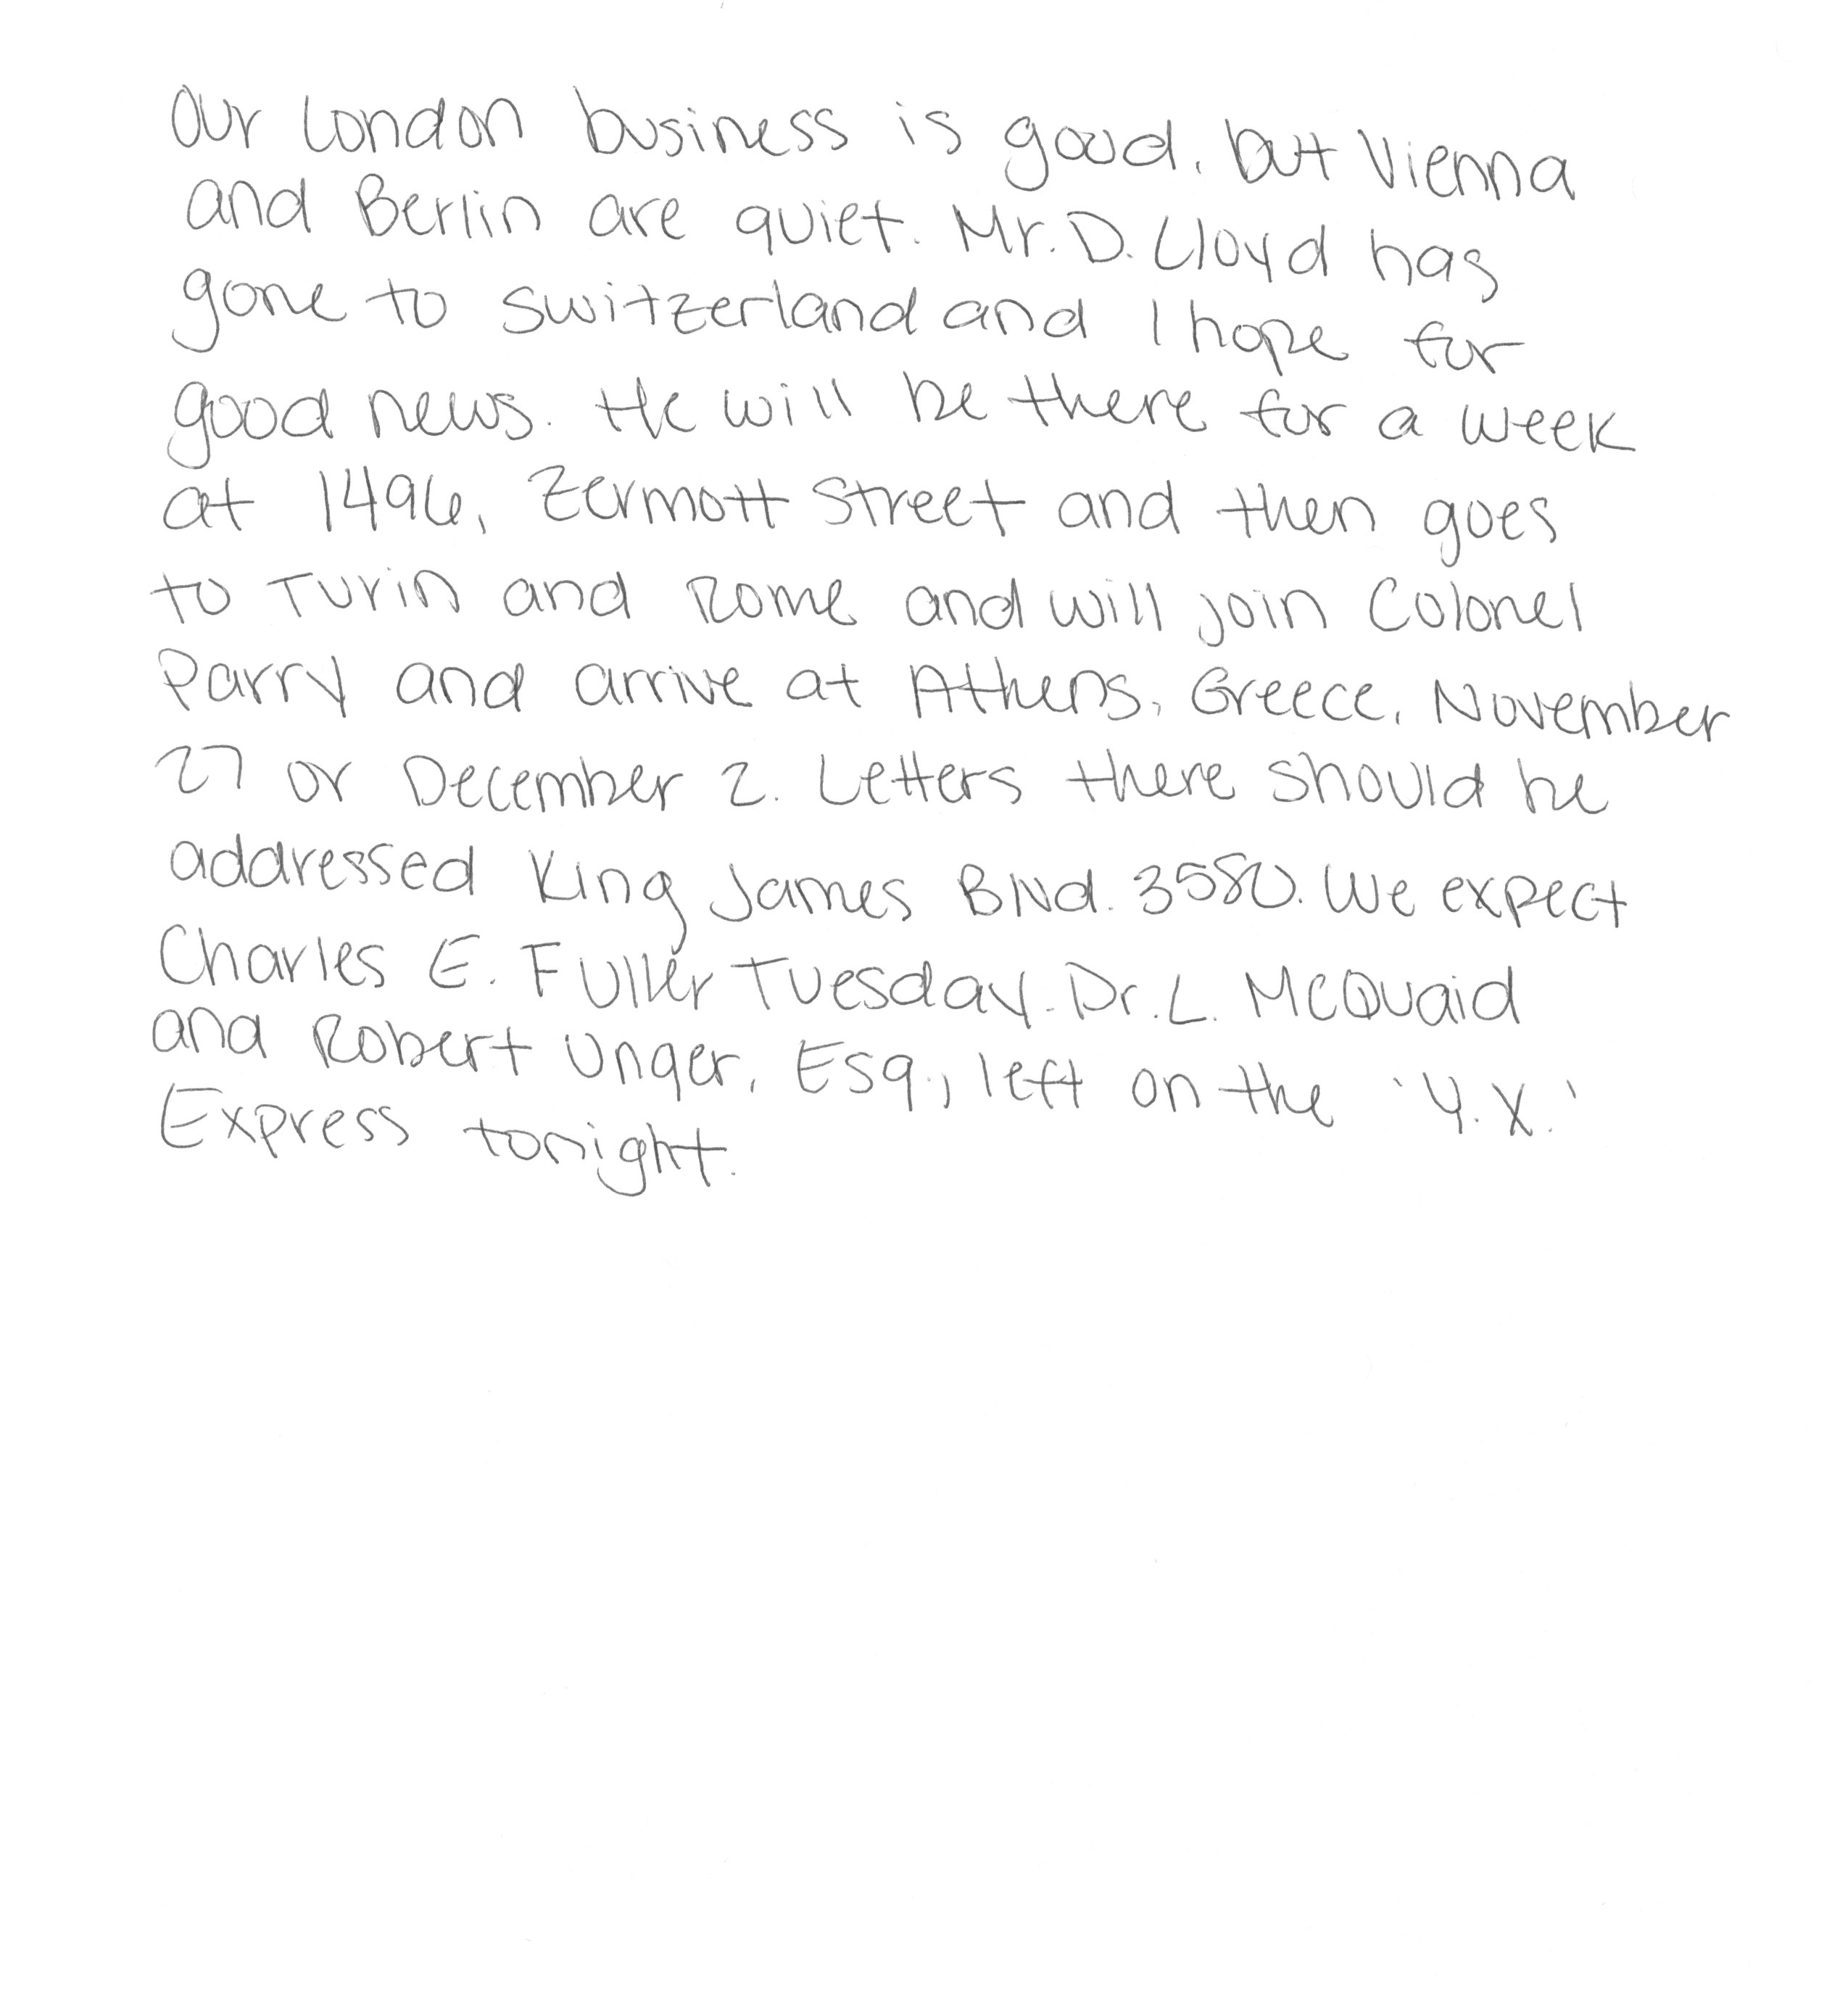 Our London business is good, but Vienna
and Berlin are quiet. Mr. D. Lloyd has
gone to Switzerland and I hope for
good news. He will be there for a week
at 1496, Zermott Street and then goes
to Turin and Rome and will join Colonel
Parry and arrive at Athens, Greece, November
27 or December 2. Letters there should be
addressed King James Blvd. 3580. We expect
Charles E. Fuller Tuesday. Dr. L. McQuaid
and Robert Unger, Esq., left on the 'Y.X.'
Express tonight.